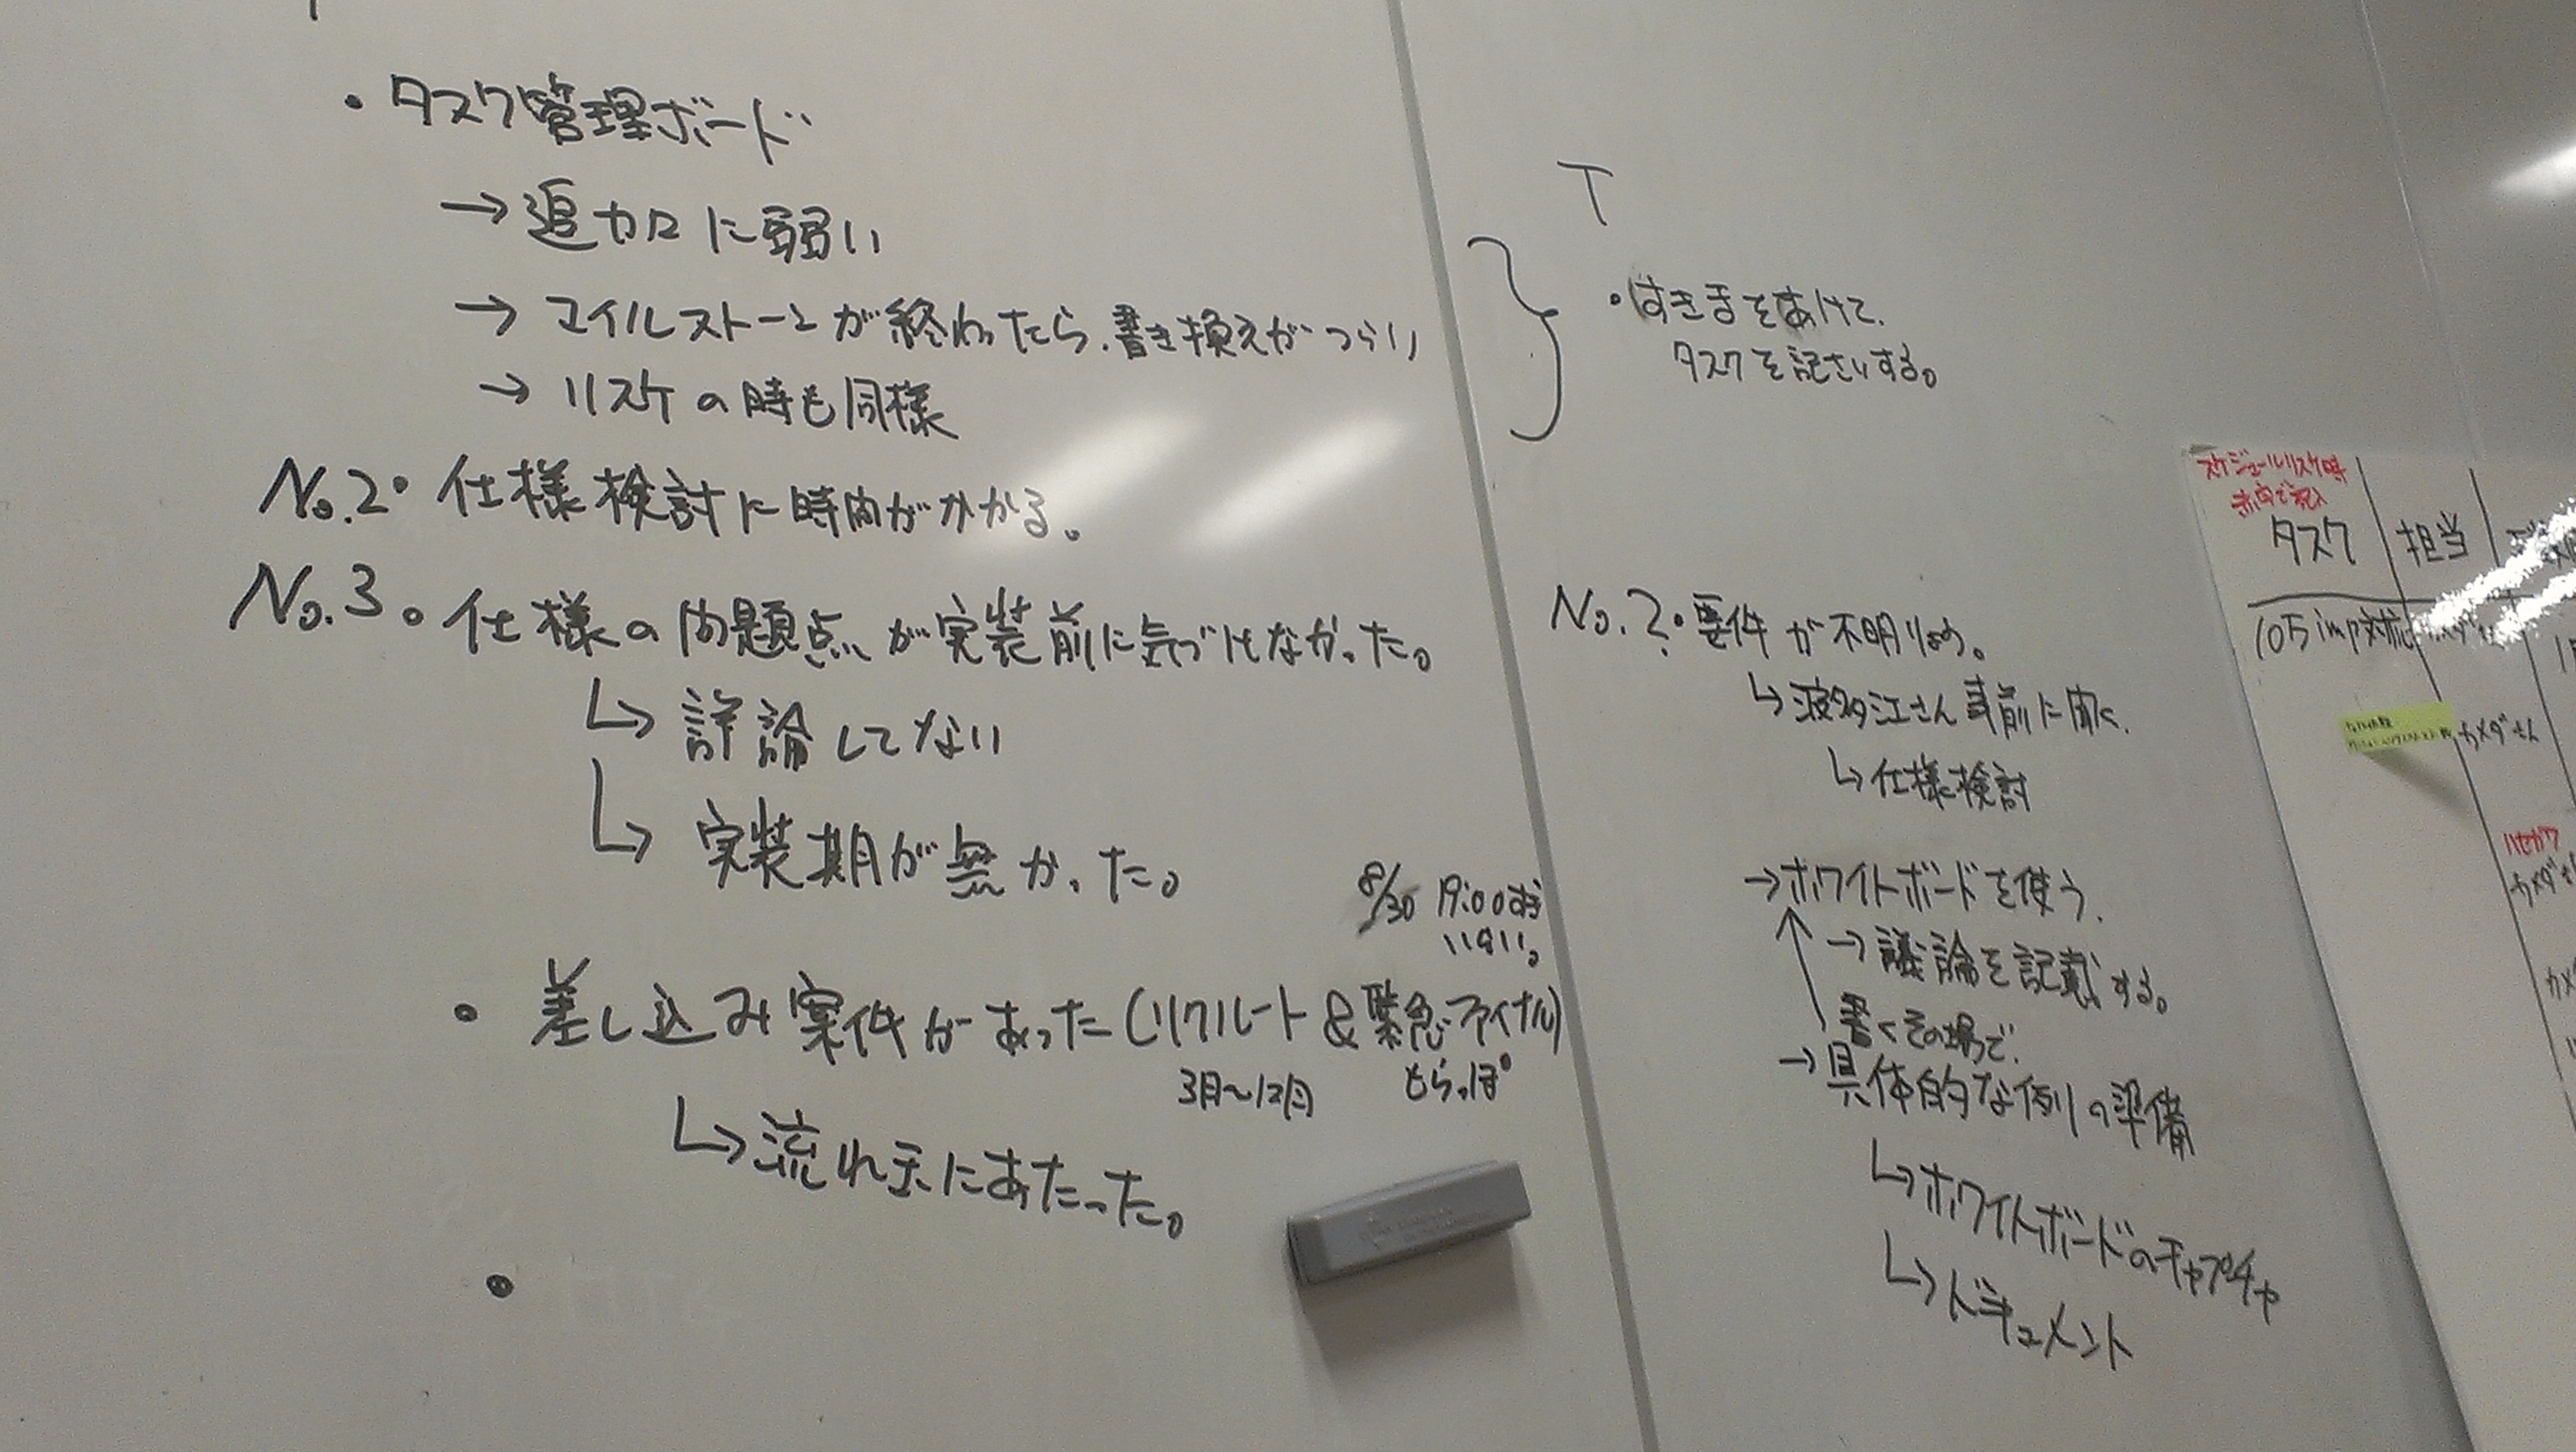 ・タスク管理ボード
→追加に弱い
→マイルストーンが終わったら、書き換えがつらい
→リスケの時も同様
No.2・仕様検討に時間がかかる。
No.3。仕様の問題点が実装前に気づけなかった。
↳詳論してない
↳実装期が無かった。
8/30 19:00すぎ
いない。
・差し込み案件があった(リクルート&緊急ファイナル)
3月〜12月
もらっぽ
↳流れ玉にあたった。
・
T
・すきまをあけて、
タスクを記さいする。
No.2・要件が不明りょう。
↳波多江さん事前に聞く、
↳仕様検討
→ホワイトボードを使う、
→議論を記載する。
書くその場で、
→具体的な例の準備
↳ホワイトボードのキャプチャ
↳ドキュメント
スケジュールリスケ時
赤字で記入
タスク 担当
10万imp対応
カメダさん
ハセガワ
カメダさ